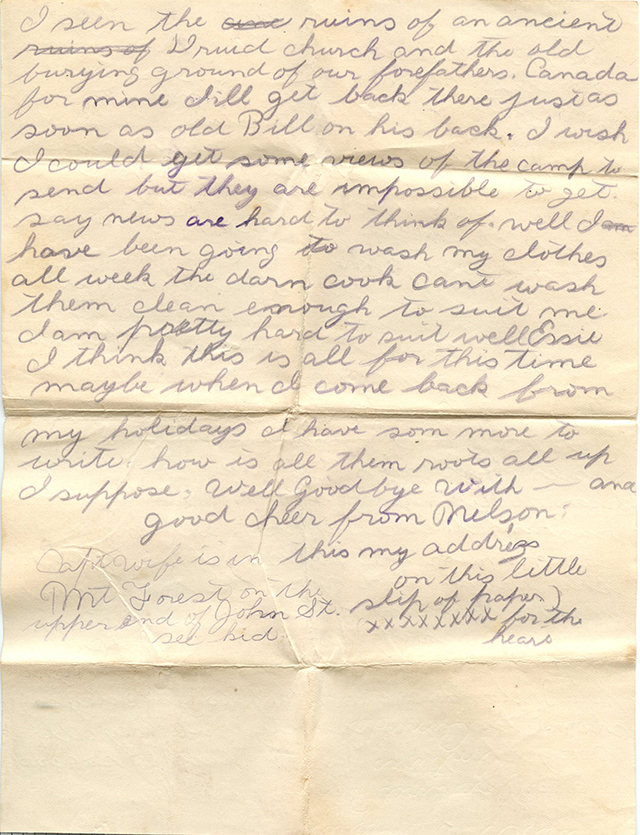 I seen the ruins of an ancient
ruins of Druid church and the old
burying ground of our forefathers. Canada
for mine I'll get back there just as
soon as old Bill on his back. I wish
I could get some views of the camp to
send but they are impossible to get.
say news are hard to think of. well I am
have been going to wash my clothes
all week the darn cook cant wash
them clean enough to suit me
I am pretty hard to suit well Essie
I think this is all for this time
maybe when I come back from
my holidays I have som more to
write. how is all them roots all up
I suppose, Well Goodbye With — and
good cheer from Melson.
Capt wife is in
Mt Forest on the
upper end of John St.
see kid
this my address
on this little
slip of paper)
xxxxxxxx for the
hears